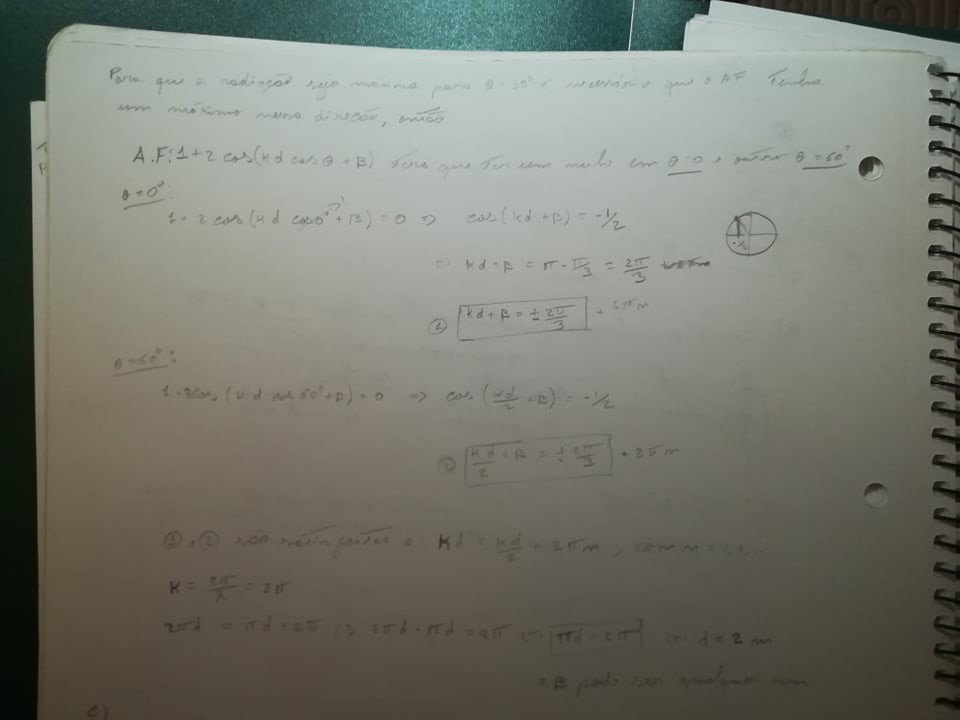 Para que a radiação seja máxima para θ = 30° é necessário que o AF tenha
um máximo nessa direção, então
A.F: 1 + 2 cos(kd cos θ + β) terá que ter um nulo em θ = 0 e outro θ = 60°
θ = 0°:
1 + 2 cos(kd cos 0° + β) = 0 => cos(kd + β) = -1/2
-1/2
kd + β = π - π/3 = 2π/3
① kd + β = ± 2π/3 + 2πn
θ = 60°:
1 + 2cos(kd cos 60° + β) = 0 => cos(kd/2 + β) = -1/2
② kd/2 + β = ± 2π/3 + 2πn
① e ② são satisfeitas kd = kd/2 + 2πn, com n = 1, 2, ...
k = 2π/λ = 2π
2πd = πd + 2π <=> 2πd - πd = 2π <=> πd = 2π <=> d = 2 m
β pode ser qualquer um
c)